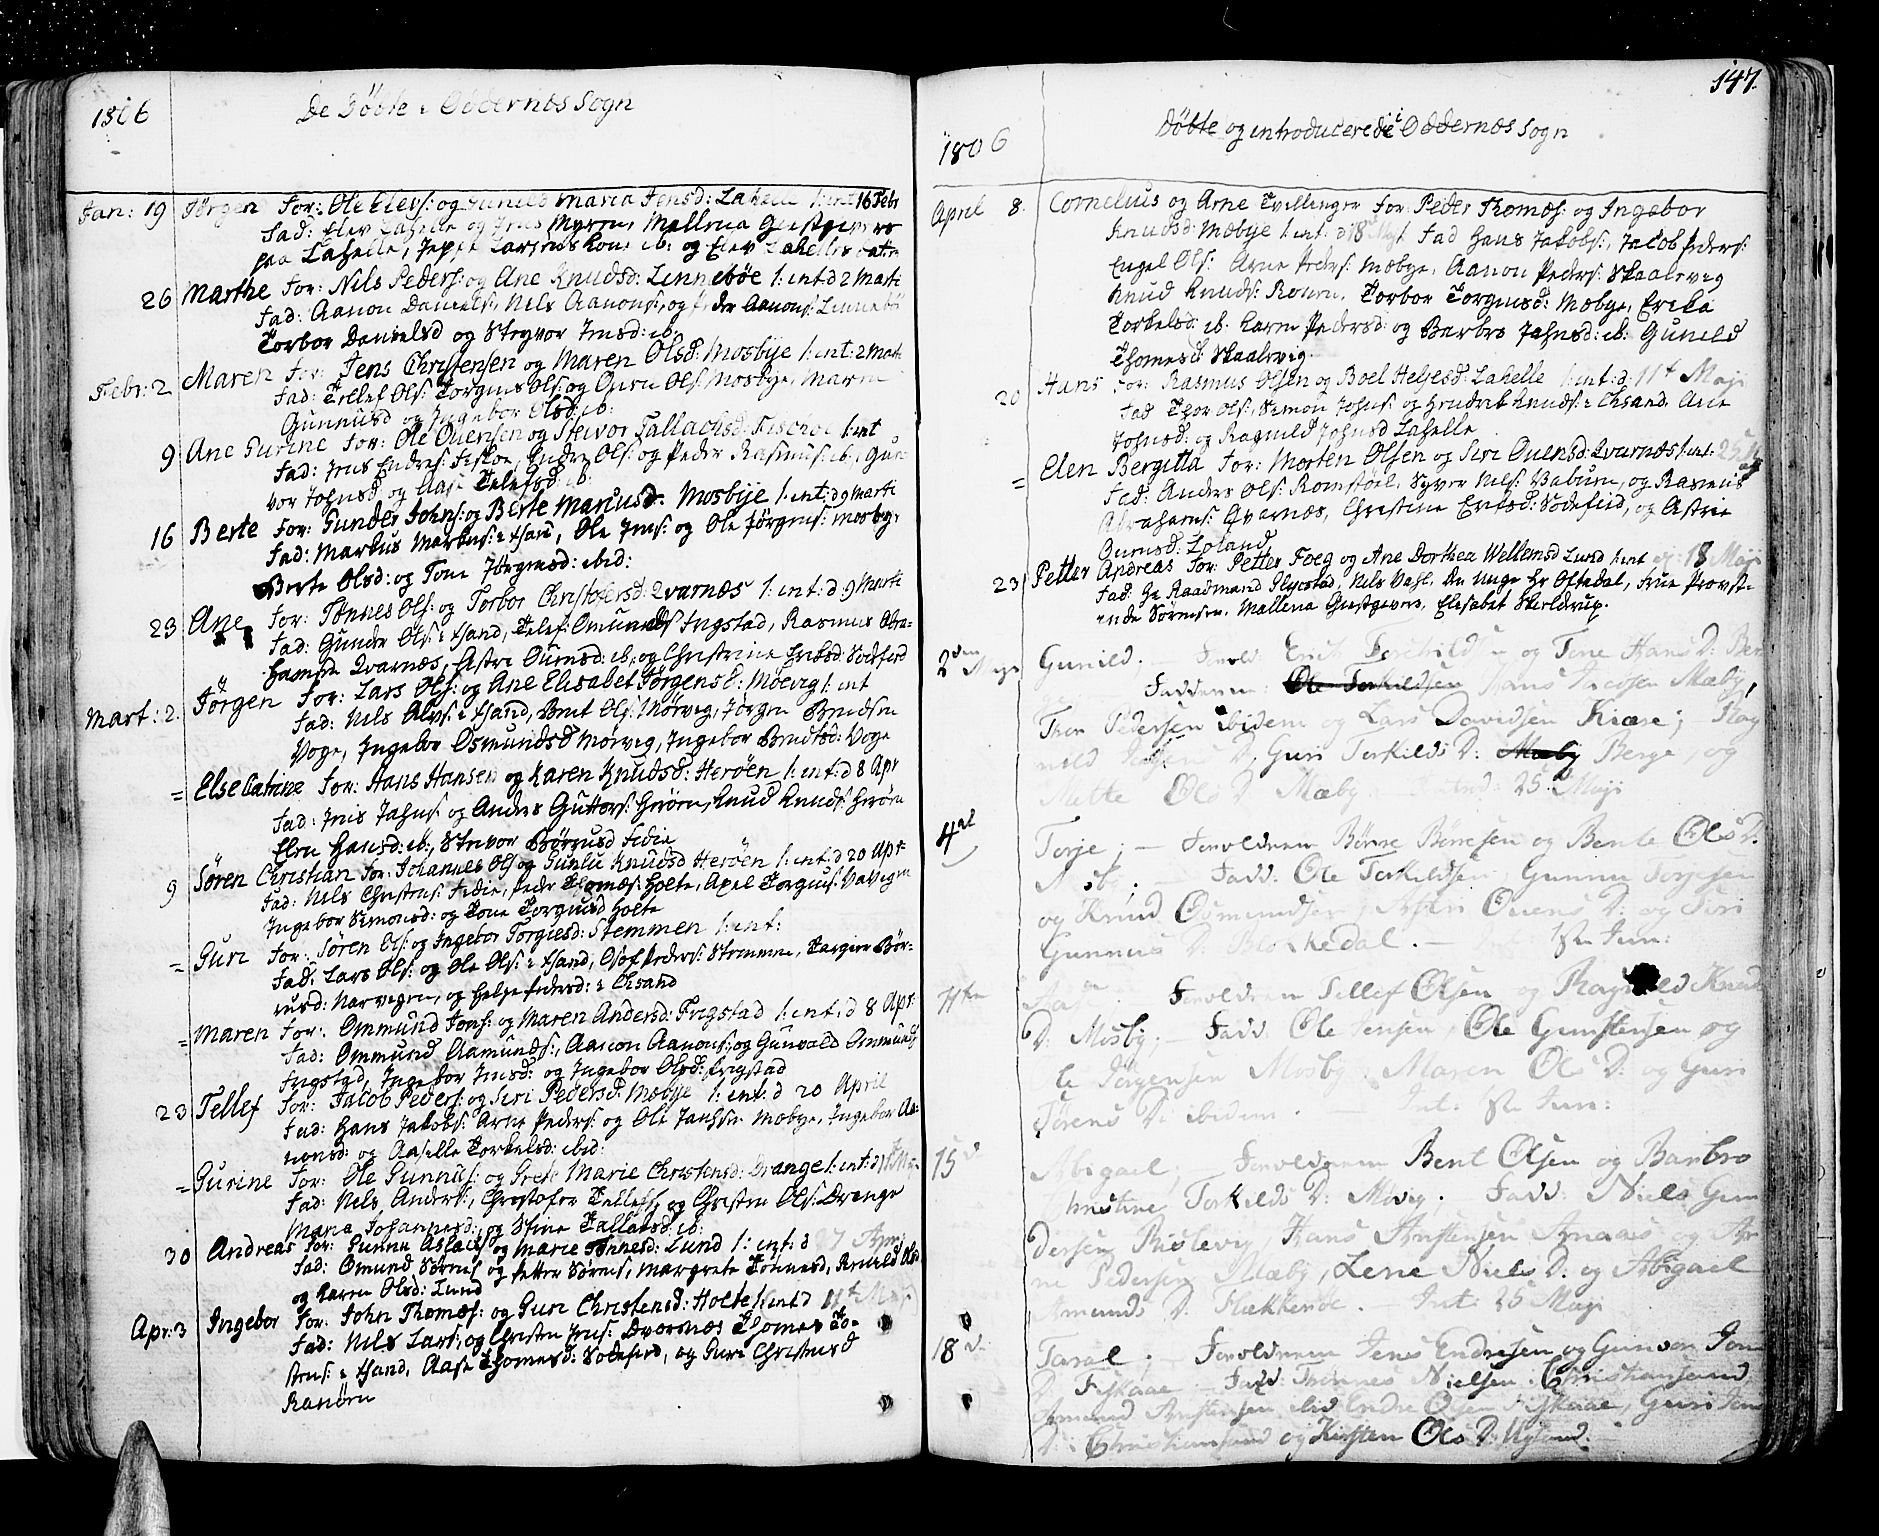 1806
De Döbte i Oddernæs Sogn
Jan: 19 Jörgen For: Ole Elevs: og Gunild Maria Jensd: Lahelle /: int 16 Febr
Fad: Elev Lahelle og Jens Myren, Mallena Giestgivers
paa Lahelle, Jeppe Larsens kone ib: og Elev Lahelles
26 Marthe For: Nils Peders: og Ane Knudsd: Linnebøe /: int: d 2 Marti
Fad: Aanon Daniels: Nils Aanons: og Peder Aanons: Linnebö
Torbor Danielsd og Siegvor Jensd: ib:
Febr: 2 Maren For: Jens Christensen og Maren Olsd: Mosbye /: int: 2 Marti
Fad: Tellef Ols: Torgius Ols: og Guru Ols: Mosbye, Maren
Gunnusd og Ingebor Olsd: ib:
9 Ane Gurine For: Ole Ouensen og Steivor Tallachsd: /: int
Fad: Jens Endres: Fiskoe, Endre Ols: og Peder Rasmus: ib: Gun
vor Johnsd og Aase Telefsd: ib:
16 Berte For: Gunder Johns: og Berte Mariusd: Mosbye /: int: d 9 Marti
Fad: Markus Markus: i Xsand, Ole Jens: og Ole Jörgens: Mosbye
Berte Olsd: og Tone Jörgensd: ibid:
23 Ane For: Tønnes Ols: og Torbor Christofersd: Qvarnæs /: int: d: 9 Marti
Fad: Gunder Ols: i Xsand, Telef: Omunds Ingstad, Rasmus Abra=
hams: Qvarnæs, Astri Ouensd: ib: og Christine Eriksd: Sodefied
Mart: 2 Jörgen For: Lars Ols: og Ane Elisabet Jörgensd: Möevig /: int
Fad: Nils Alvs: i Xsand, Bent Ols: Mörvig, Jörgen Bendsen
Voge, Ingebor Osmundsd Mörvig, Ingebor Bendtsd: Voge
= Else Catrine For: Hans Hansen og Karen Knudsd: Heröen /: int: d 8 Apr
Fad: Jens Jahns: og Anders Guttors: Heröen, Knud Knuds: Heröen
Elen Hansd: ib:, Steivor Börgusd Fidie
9 Sören Christian For: Johannes Ols og Gunild Knudsd Heröen /: int: d 20 Apr:
Fad: Nils Christens: Fidie, Peder Thomæs: Holte, Axel Torgius: Vavegen
Ingebor Simonsd: og Tone Torgiusd Holte
= Guri For: Sören Ols: og Ingebor Torgiesd: Stemmen /: int:
Fad: Lars Ols: og Ole Ols: i Xsand, Osof Peders: Stemmen, Targiere Bör=
iusd: Narvegen, og Helge Pedersd: i Chsand
= Maren For: Ommund Jens: og Maren Andersd: Frigstad /: int: d 8 Apr:
Fad: Ommund Aamunds:, Aanon Aanons: og Gunvald Ommunds
Frigstad, Ingebor Jensd: og Ingebor Olsd: Frigstad
23 Tellef For: Jacob Peders: og Siri Pedersd: Mæbye /: int: d 20 April
Fad: Hans Jakobs: Arne Peders: og Ole Janssen Mæbye, Ingebor Aa=
nonsd: og Aaselle Torkelsd: ibid:
= Gurine For: Ole Gunnus: og Grete Marie Christensd: Drange /: int: d
Fad: Nils Anders:, Christofer Tellefs: og Christen Ols: Drange
Maria Johannesd: og Stine Tallaksd: ib:
30 Andreas For: Gunnu Aslacs: og Marie Tönnesd: Lund /: int: d 27 Apri
Fad: Omund Sörens og Petter Sörens, Margrete Tönnesd, Ragnild Ols:
og Karen Olsd: Lund
Apr: 3 Ingebor For: John Thomæs: og Guri Christensd: Holte /: int d 11t Maj
Fad: Nils Lars: og Christen Jens: Dværsnæs Thomas To=
stens: i Xsand, Aase Thomesd: Sodefied, og Guri Christensd
Ranören
147.
1806
Döbte og introducerede i Oddernæs Sogn
April 8. Cornelius og Arne Tvillinger For: Peder Thomæs: og Ingebor
Knudsd: Mæbye /: int: d 18 Maji Fad Hans Jakobs:, Jacob Peders:
Engel Ols: Arne Peders: Mæbye, Aanon Peders: Skaalevig
Knud Knuds: Rouen, Torbor Torgiusd: Mæbye, Erika
Torkelsd: ib: Karen Pedersd: og Barbro Jahnsd: ib: Gunild
Thomesd: Skaalevig
20 Hans For: Rasmus Olsen og Boel Heljesd: Lahelle /: int: d: 11t Maji
Fad Thor Ols:, Simon Johns: og Hendrik Knuds: i Chsand, Ane
Johnsd: og Ragnild Johnsd Lahelle
= Elen Bergitta For: Morten Olsen og Siri Ouensd: Qvarnæs /: int: 25
Fad: Anders Ols: Romstöel, Syver Nels: Vabuen, og Rasmus
Abrahams: Qvarnæs, Christine Eriksd: Sodefied, og Astrie
Ouensd: Löland
23 Petter Andreas For: Petter Foeg og Ane Dorthea Wellemsd Lund /: int d: 18 Maji
Fad: Hr Raadmand Ilgestad, Nils Vahl. Den Unge Hr Oftedal, Frue Provst=
inde Sörensen. Mallena Giestgivers, Elisabet Skieldrup.
2den Maji Gunild. — Forold. Erich Torkildsen og Tine Hans D: Ber
Fadderne: Ole Torkildsen Hans Jacobsen Mæby,
Thor Pedersen ibidem og Lars Davidsen Kiære; Rag
nild D, Guri Torkilds D: Mæby Berge, og
Mette Ols D. Mæby. — Int: 25 Maji
4de Terje; — Forældrene Börre Börresen og Bente Ols D.
Mosby; Fadd: Ole Torkildsen, Gunnu Terjesen
og Knud Osmundsen, Ouens D: og Siri
Gunnus D: Stokkedal. 8de Jun:
11ten Forældrene Tellef Olsen og Ragnild Knud
D: Mosby. — Fadd: Ole Jensen, Ole Gunstensen og
le Jörgensen Mosby, Maren Ols D: og Guri
Sörens D: ibidem. Int: 8de Jun:
15d Abigael, Forældrene Bent Olsen og Barbro
hristine Torkilds D: Mövig; Fadd: Niels Gun
dersen Rislevig, Hans Arnstensen Aanaas og Ar
ne Pedersen Mæby, Lene Niels D: og Abigael
Amunds D. Flekkeröe. — Int: 25 Maji
18d. Taral; Forældrene Jens Endresen og Gunvor Jens
D. Fiskaae. — Fadd: Thönnes Nielsen, Christiansand,
Amund Arnstensen ibid Endre Olsen Fiskaae, Guri Jens
D: Christiansand og Kirsten Ols D: Ugland.